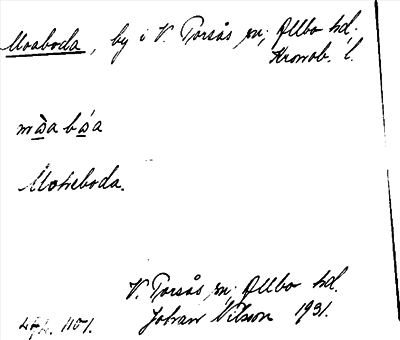 Moaboda, by i V. Torsås sn, Allbo hd,
Kronob. l.
Motieboda.
V. Torsås sn, Allbo hd.
Johan Nilson 1931.